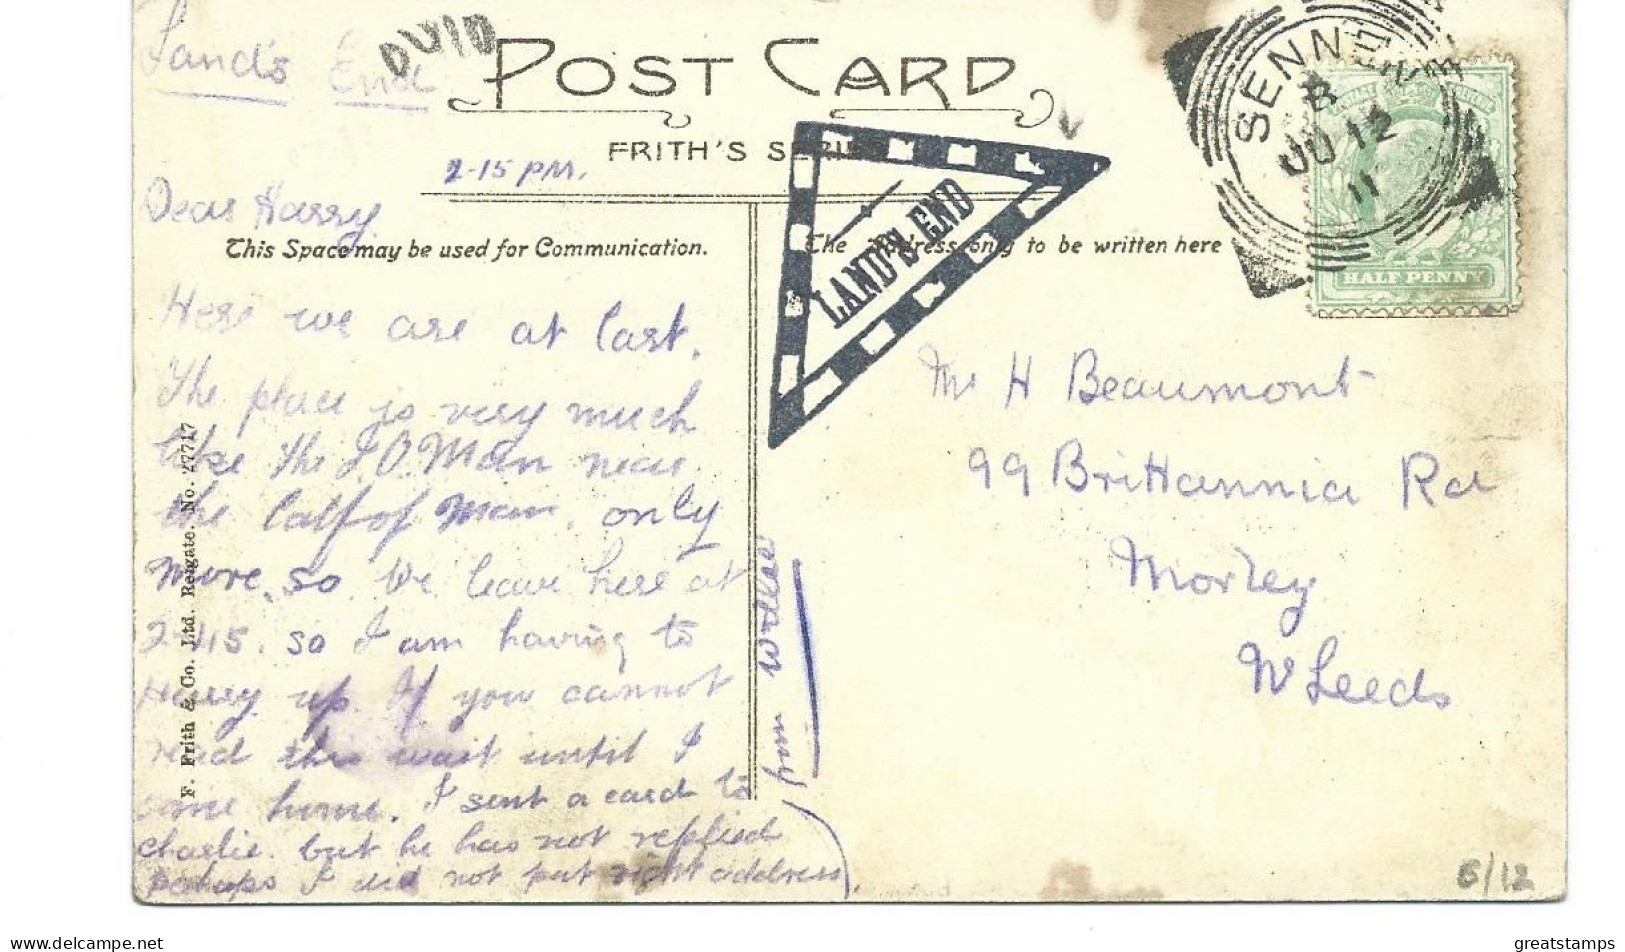 Land's End
POST CARD
FRITH'S SERIES
2-15 PM.
SENNEN
B
JU 12
11
HALF PENNY
LAND'S END
Dear Harry
This Space may be used for Communication.
The Address only to be written here
Here we are at last.
The place is very much
like the I.O.Man near
the Calf of Man. only
more. so. We leave here at
2-45. so I am having to
Hurry up. If you cannot
read this wait until I
come home. I sent a card to
Charlie. but he has not replied
perhaps I did not put right address.
Mr H Beaumont
99 Brittannia Rd
Morley
Nr Leeds
F. Frith & Co. Ltd. Reigate. No. 27717
6/12
www.delcampe.net
greatstamps